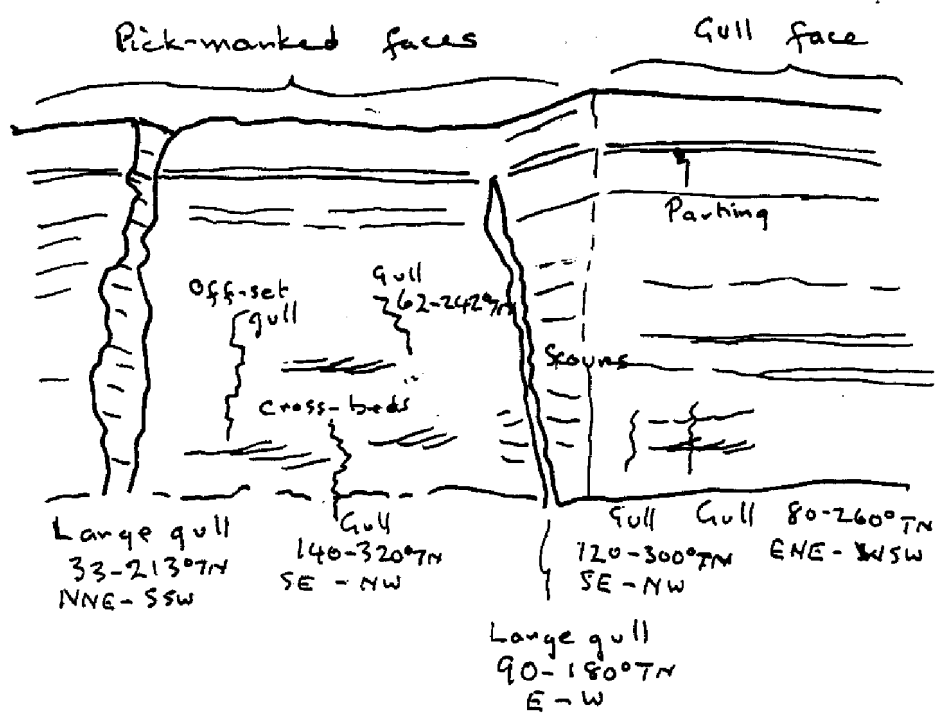 Pick-marked faces
Gull face
Parting
Off-set
gull
Gull
62-242°TN
Scours
cross-beds
Large gull
33-213°TN
NNE-SSW
Gull
140-320°TN
SE-NW
Gull
120-300°TN
SE-NW
Gull 80-260°TN
ENE-WSW
Large gull
90-180°TN
E-W